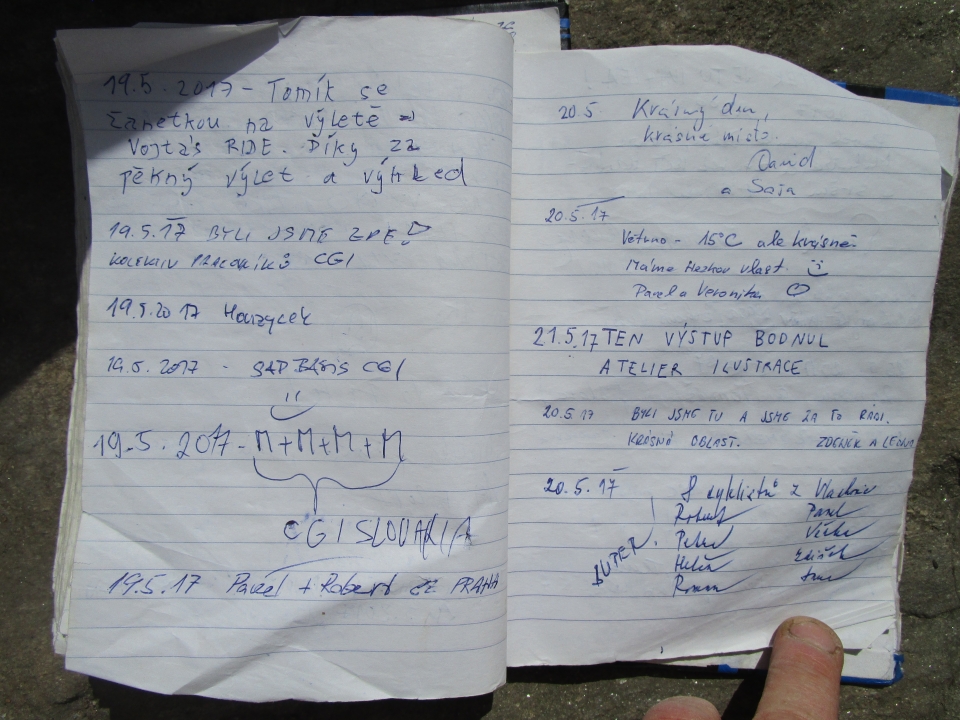 19.5.2017 - Tomík se
Žanetkou na výletě
Vojta's RIDE. Díky za
pěkný výlet a výhled
19.5.17 BYLI JSME ZDE!
KOLEKTIV PRACOVNÍKŮ CGI
19.5.2017
19.5.2017 - SAP BASIS CGI
19.5.2017 - M+M+M+M
CGI SLOVAKIA
19.5.17 Pavel + Robert PRAHA
20.5 Krásný den,
krásné místo.
David
a Saša
20.5.17
Větrno - 15°C ale krásně.
Máme hezkou vlast
Pavel a Veronika
21.5.17 TEN VÝSTUP BODNUL
ATELIER ILUSTRACE
20.5.17 BYLI JSME TU A JSME ZA TO RÁDI.
KRÁSNÁ OBLAST. ZDENĚK A
20.5.17 8 cyklistů z
Robert Pavel
Petr
SUPER.
Roman